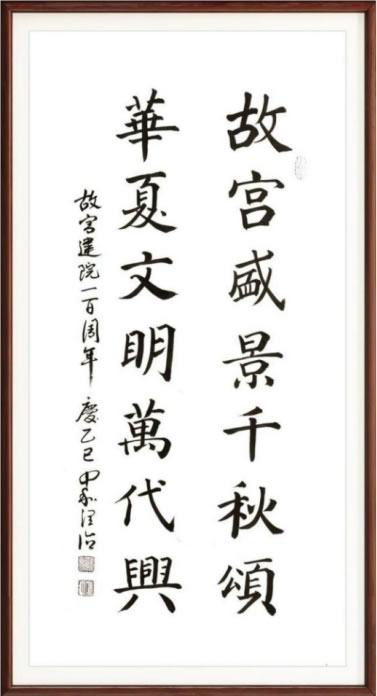 故宫盛景千秋頌
華夏文明萬代興
故宫建院一百周年 慶乙巳